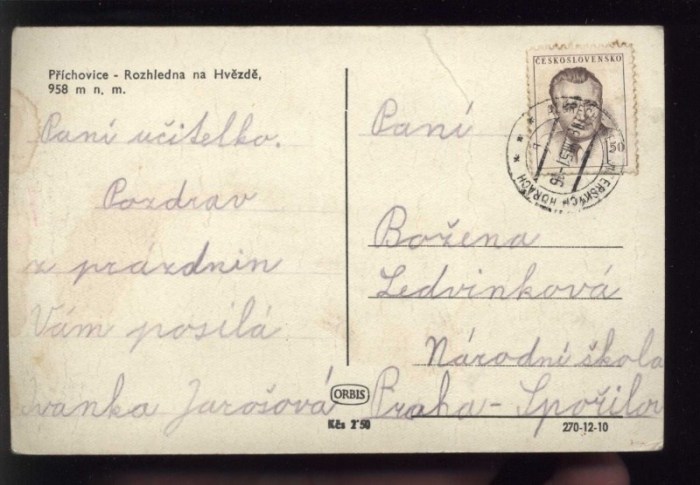 Příchovice - Rozhledna na Hvězdě,
958 m n. m.
Paní učitelko.
Pozdrav
z prázdnin
Vám posílá
Ivanka Jarošová
ČESKOSLOVENSKO
1,50
ERSKÝCH HORÁCH
Paní
Božena
Ledvinková
Národní škola
Praha-Spořilov
ORBIS
Kčs 2'50
270-12-10